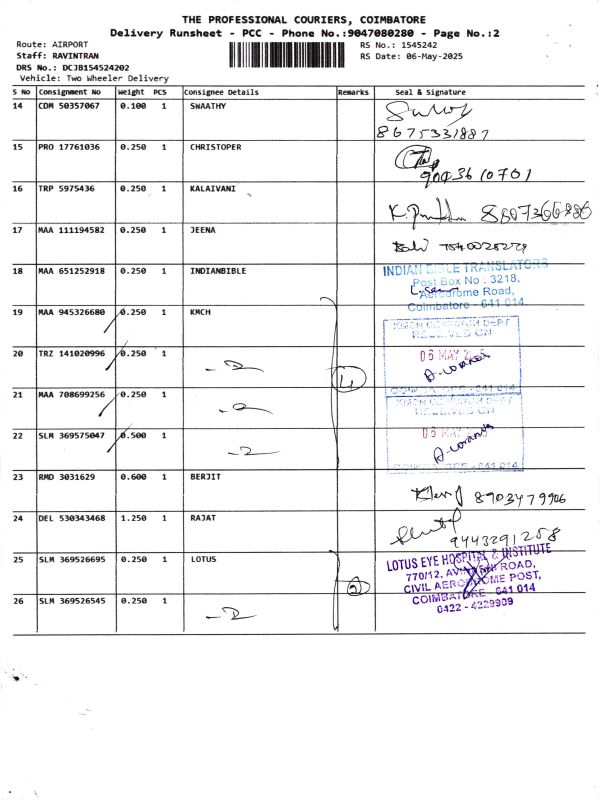 THE PROFESSIONAL COURIERS, COIMBATORE
Delivery Runsheet - PCC - Phone No.:9047080280 - Page No.:2
Route: AIRPORT
RS No.: 1545242
Staff: RAVINTRAN
RS Date: 06-May-2025
DRS No.: DCJB154524202
Vehicle: Two Wheeler Delivery
S No Consignment No Weight PCS Consignee Details Remarks Seal & Signature
14 CDM 50357067 0.100 1 SWAATHY
8675331887
15 PRO 17761036 0.250 1 CHRISTOPER
9003610701
16 TRP 5975436 0.250 1 KALAIVANI
17 MAA 111194582 0.250 1 JEENA
18 MAA 651252918 0.250 1 INDIANBIBLE
INDIAN BIBLE TRANSLATORS
Post Box No : 3218,
Aerodrome Road,
Coimbatore - 641 014
19 MAA 945326680 0.250 1 KMCH
RECEIVED ON
20 TRZ 141020996 0.250 1
06 MAY
21 MAA 708699256 0.250 1
RECEIVED ON
22 SLM 369575047 0.500 1
06 MAY
641 014
23 RMD 3031629 0.600 1 BERJIT
8903479906
24 DEL 530343468 1.250 1 RAJAT
9443291258
25 SLM 369526695 0.250 1 LOTUS
LOTUS EYE HOSPITAL & INSTITUTE
770/12, AVINASHI ROAD,
CIVIL AERODROME POST,
COIMBATORE - 641 014
0422 - 4229909
26 SLM 369526545 0.250 1